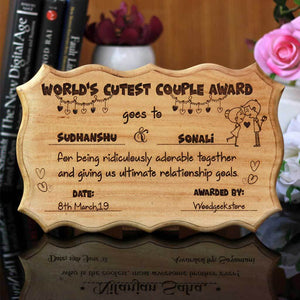 The New Digital Age
WORLD'S CUTEST COUPLE AWARD
goes to
SUDHANSHU & SONALI
For being ridiculously adorable together
and giving us ultimate relationship goals.
DATE: AWARDED BY:
8th March,19 Woodgeekstore
Nilanjan Saha